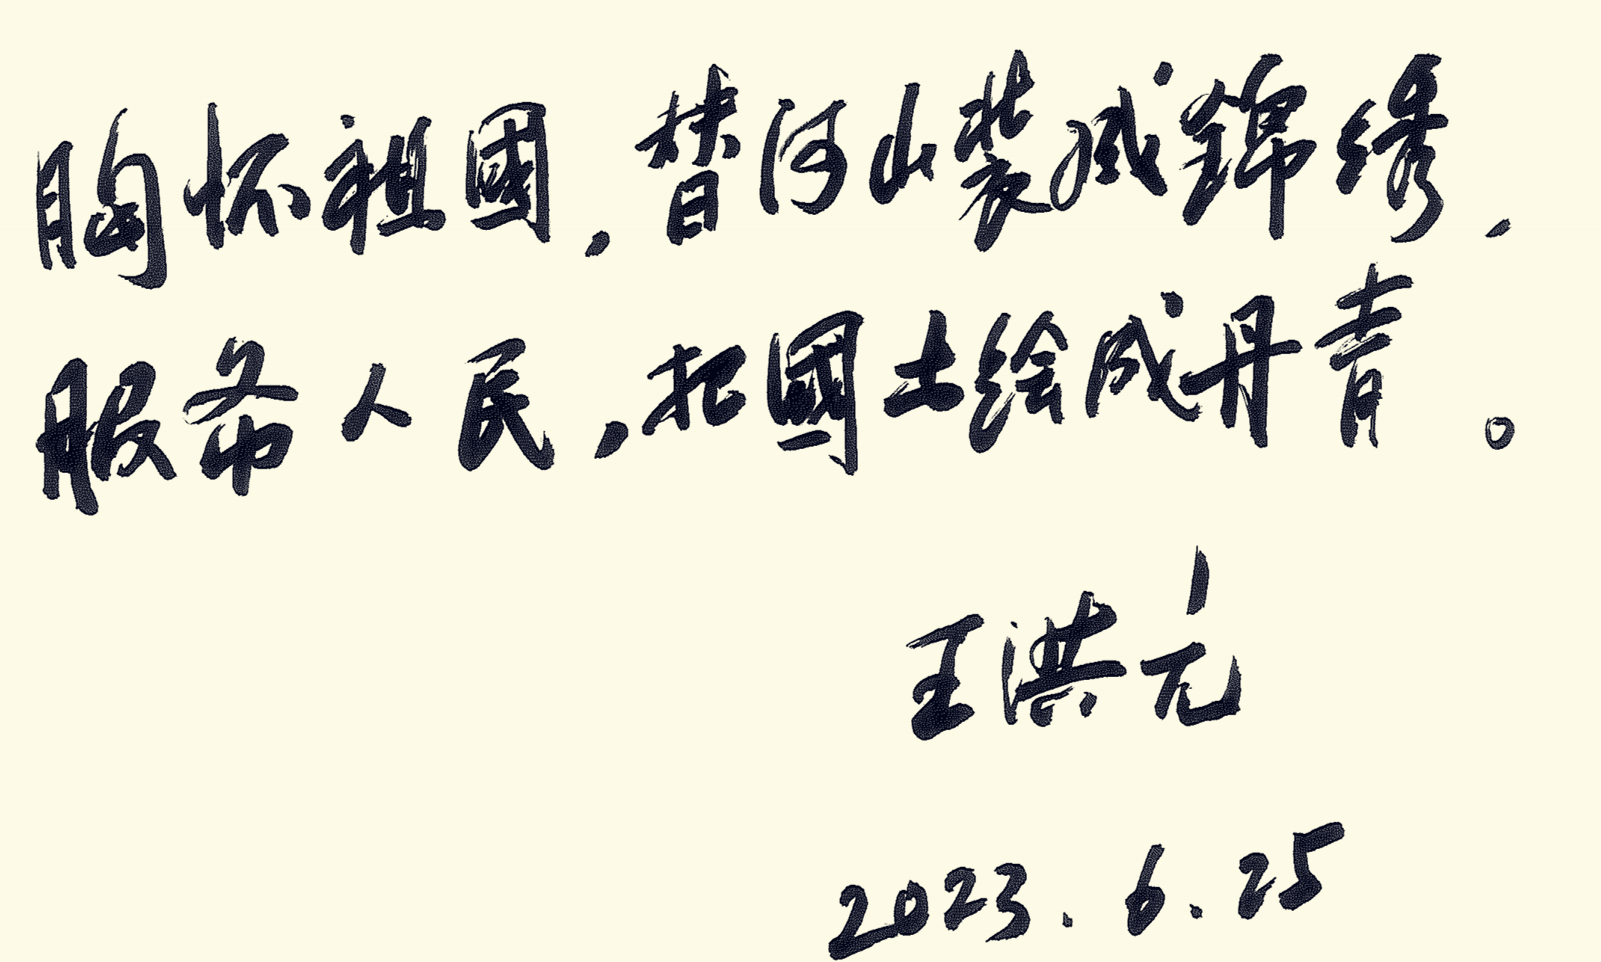 胸怀祖國，替河山装成錦绣，
服务人民，把國土绘成丹青。
王洪元
2023.6.25